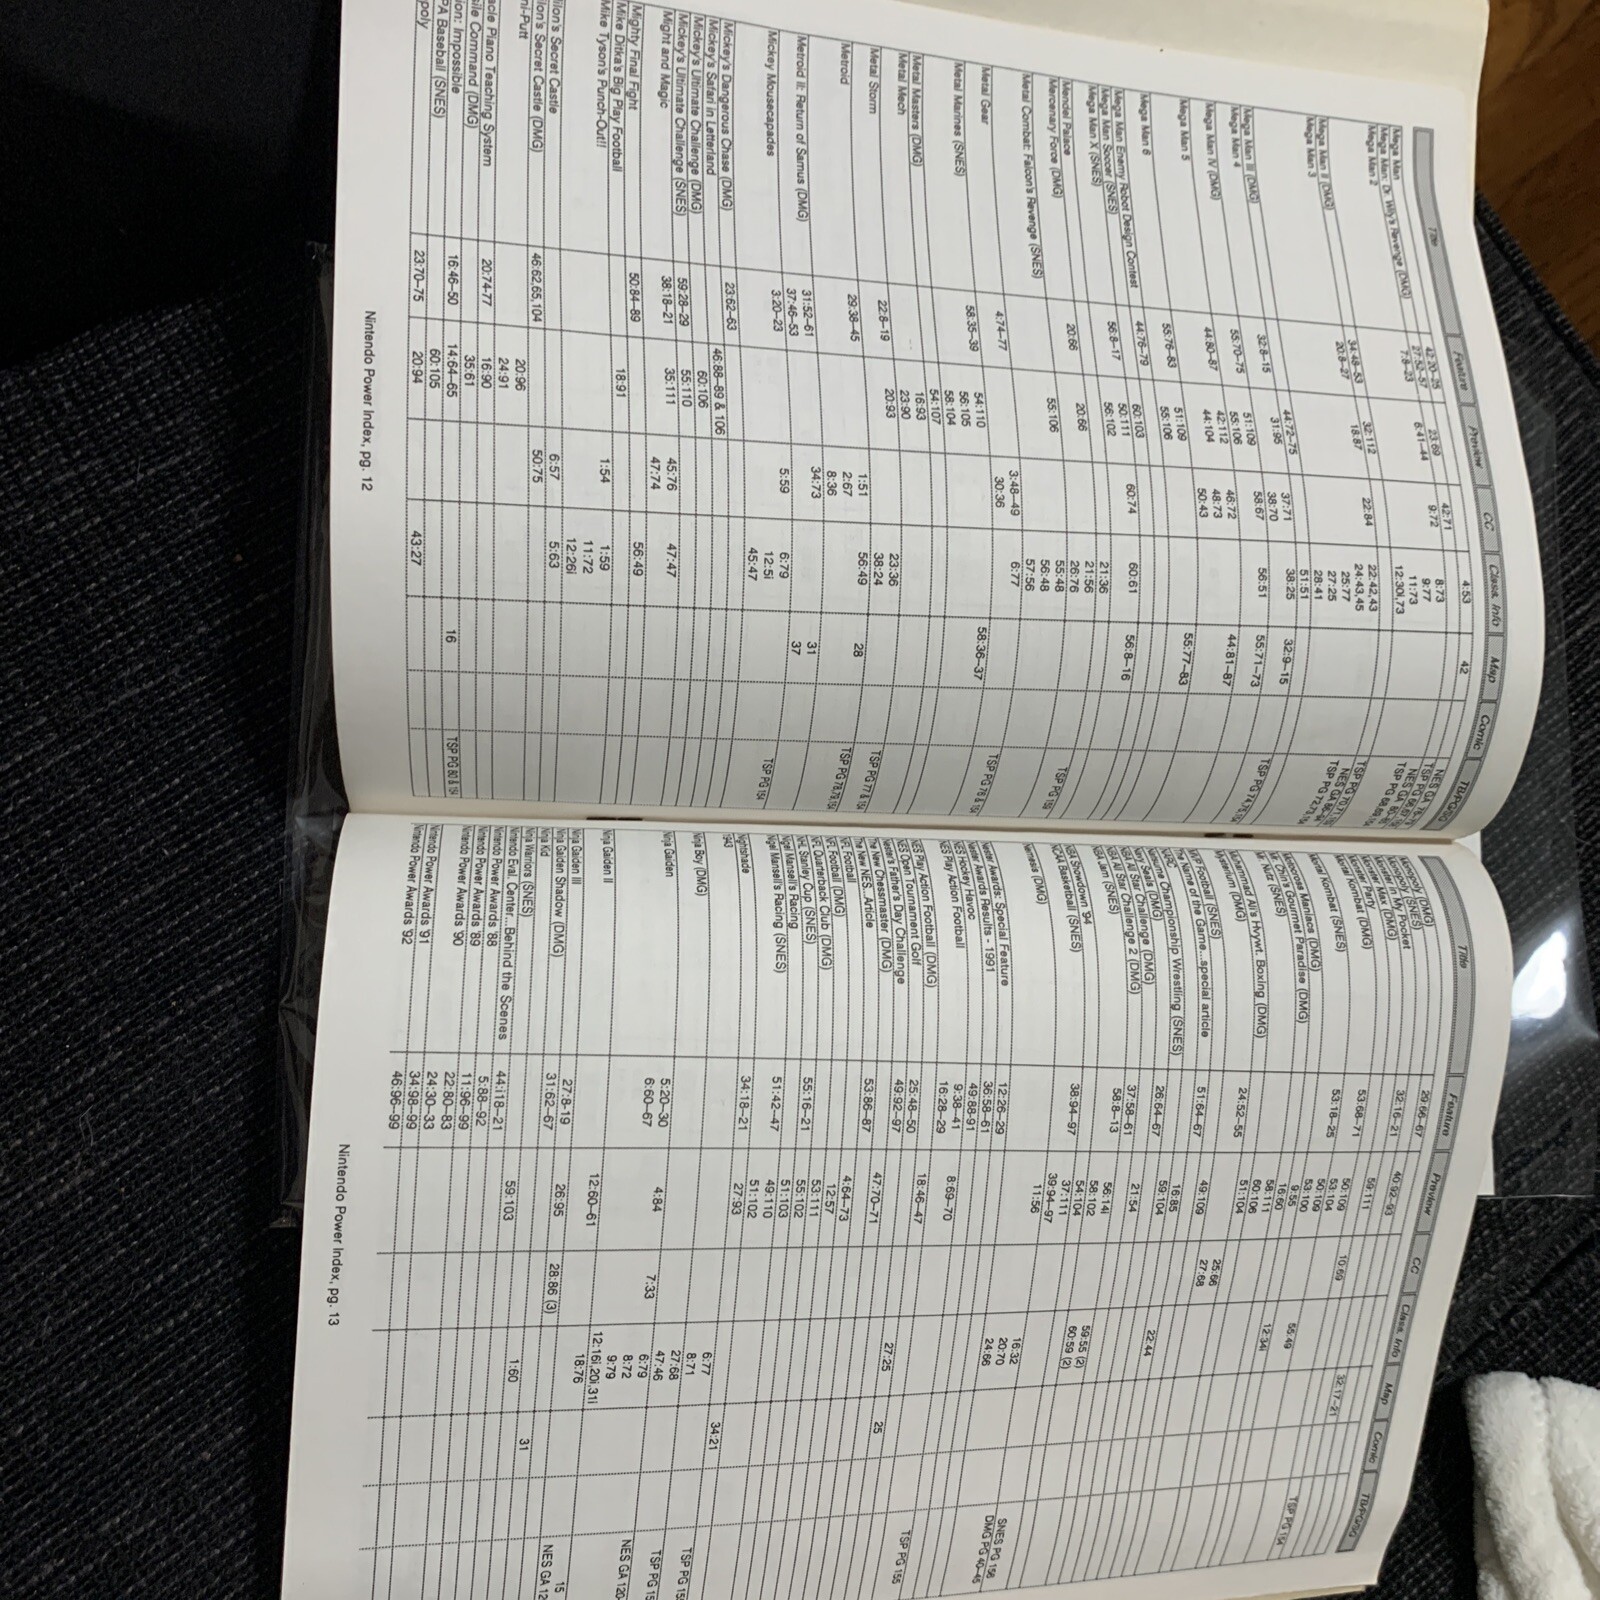 Title Feature Preview CC Class. Info Map Comic TB/PG/SG
Mega Man 4:53 42
8:73
9:77
11:73
12:30i,73
Mega Man: Dr. Wily's Revenge (DMG) 42:20–25 23:69 42:71
27:52–57 9:72
Mega Man 2 7:8–23 6:41–44 22:42,43
24:43,45
25:77
27:25
28:41
51:51
Mega Man II (DMG) 34:48–53 32:112
Mega Man 3 20:8–27 18:87 22:84 38:25 TSP PG 70,71,154
Mega Man III (DMG) 44:72–75 37:71 56:51
Mega Man 4 32:8–15 31:95 38:70 32:9–15
58:67
Mega Man IV (DMG) 55:70–75 51:109 55:71–73 TSP PG 74,75,154
55:106
Mega Man 5 44:80–87 42:112 46:72 44:81–87
44:104 48:73
50:43
Mega Man 6 55:76–83 51:109 55:77–83
55:106
Mega Man Enemy Robot Design Contest 44:76–79
Mega Man Soccer (SNES) 60:103 60:74 60:61
Mega Man X (SNES) 56:8–17 50:111 56:8–16
56:102
Mendel Palace 20:66 20:66 21:36
21:56
26:76
Mercenary Force (DMG) TSP PG 151
Metal Combat: Falcon's Revenge (SNES) 55:106 55:48
56:48
57:56
Metal Gear 4:74–77 3:48–49 6:77
30:36
Metal Marines (SNES) 58:35–39 54:110 58:36–37 TSP PG 76 & 154
56:105
58:104
Metal Masters (DMG) 54:107
Metal Mech 16:93
23:90
Metal Storm 22:8–19 20:93 1:51 23:36 TSP PG 77 & 154
38:24
56:49
Metroid 29:38–45 2:67 28 TSP PG 78,79,154
8:36
Metroid II: Return of Samus (DMG) 31:52–61 34:73 31
37:46–53 37
Mickey Mousecapades 3:20–23 5:59 6:79 TSP PG 154
12:5i
45:47
Mickey's Dangerous Chase (DMG) 23:62–63
Mickey's Safari in Letterland 46:88–89 & 106
Mickey's Ultimate Challenge (DMG) 60:106
Mickey's Ultimate Challenge (SNES) 59:28–29 55:110
Might and Magic 38:18–21 35:111 45:76 47:47
47:74
Mighty Final Fight 50:84–89 56:49
Mike Ditka's Big Play Football 18:91
Mike Tyson's Punch-Out!! 1:54 1:59
11:72
12:26i
lion's Secret Castle 6:57 5:63
lion's Secret Castle (DMG) 46:62,65,104 50:75
ni-Putt 20:96
24:91
acle Piano Teaching System 20:74-77 16:90
ile Command (DMG) 35:61
ion: Impossible 16:46–50 14:64–65 16 TSP PG 80 & 154
PA Baseball (SNES) 60:105
poly 23:70–75 20:94 43:27
Nintendo Power Index, pg. 12
Title Feature Preview CC Class. Info Map Comic TB/PG/SG
Monopoly (DMG)
Monopoly (SNES)
Monopoly in My Pocket 29:66–67
Monster Max (DMG)
Monster Party 32:16–21 40:92–93 32:17–21
Mortal Kombat (DMG) 53:68–71 59:111
Mortal Kombat (SNES) 53:18–25 50:109 10:69
53:104
50:109
53:100
Motocross Maniacs (DMG) 9:55 55:49
Mr. Chin's Gourmet Paradise (DMG) 16:60
Mr. Nutz (SNES) 58:111 TSP PG 154
Muhammad Ali's Hvywt. Boxing (DMG) 60:106
Mysterium (DMG) 24:52–55 51:104 12:34i
MVP Football (SNES) 49:109
The Name of the Game...special article 51:64–67 25:66
27:68
NARC 16:85
Natsume Championship Wrestling (SNES) 59:104
Navy Seals (DMG) 26:64–67 21:54
NBA All Star Challenge (DMG) 22:44
NBA All Star Challenge 2 (DMG) 37:58–61
NBA Jam (SNES) 58:8–13 56:14i
58:102
NBA Showdown '94 54:104
NCAA Basketball (SNES) 38:94–97 37:111 59:55 (2)
39:94–97 60:59 (2)
Nemesis (DMG) 11:56
Nester Awards: Special Feature 12:26–29 16:32
20:70
24:66
Nester Awards Results - 1991 36:58–61 SNES PG 156
DMG PG 40–45
NES Hockey Havoc 49:88–91
NES Play Action Football 9:38–41 8:69–70
16:28–29
NES Play Action Football (DMG)
NES Open Tournament Golf 25:48–50 18:46–47
Nester's Father's Day Challenge 49:92–97
The New Chessmaster (DMG) 27:25
The New NES...Article 53:86–87 47:70–71 25 TSP PG 155
NFL Football 4:64–73
NFL Football (DMG) 12:57
NFL Quarterback Club (DMG) 53:111
NHL Stanley Cup (SNES) 55:16–21 55:102
Nigel Mansell's Racing 51:103
Nigel Mansell's Racing (SNES) 51:42–47 49:110
51:102
Nightshade 34:18–21 27:93
1943 6:77
8:71
Ninja Boy (DMG) 34:21
27:68
47:46
Ninja Gaiden 5:20–30 4:84 7:33 6:79 TSP PG 155
6:60–67 8:72
9:79
12:16i,20i,31i
Ninja Gaiden II 12:60–61 18:76 TSP PG 15
Ninja Gaiden III 27:8-19 26:95 28:86 (3) NES GA 120
Ninja Gaiden Shadow (DMG) 31:62–67
Ninja Kid 1:60
Ninja Warriors (SNES) 59:103 31
Nintendo Eval. Center...Behind the Scenes 44:i18–21
Nintendo Power Awards '88 5:88–92 15
Nintendo Power Awards '89 11:96–99 NES GA 12
Nintendo Power Awards '90 22:80–83
24:30–33
Nintendo Power Awards '91 34:98–99
Nintendo Power Awards '92 46:96–99
Nintendo Power Index, pg. 13